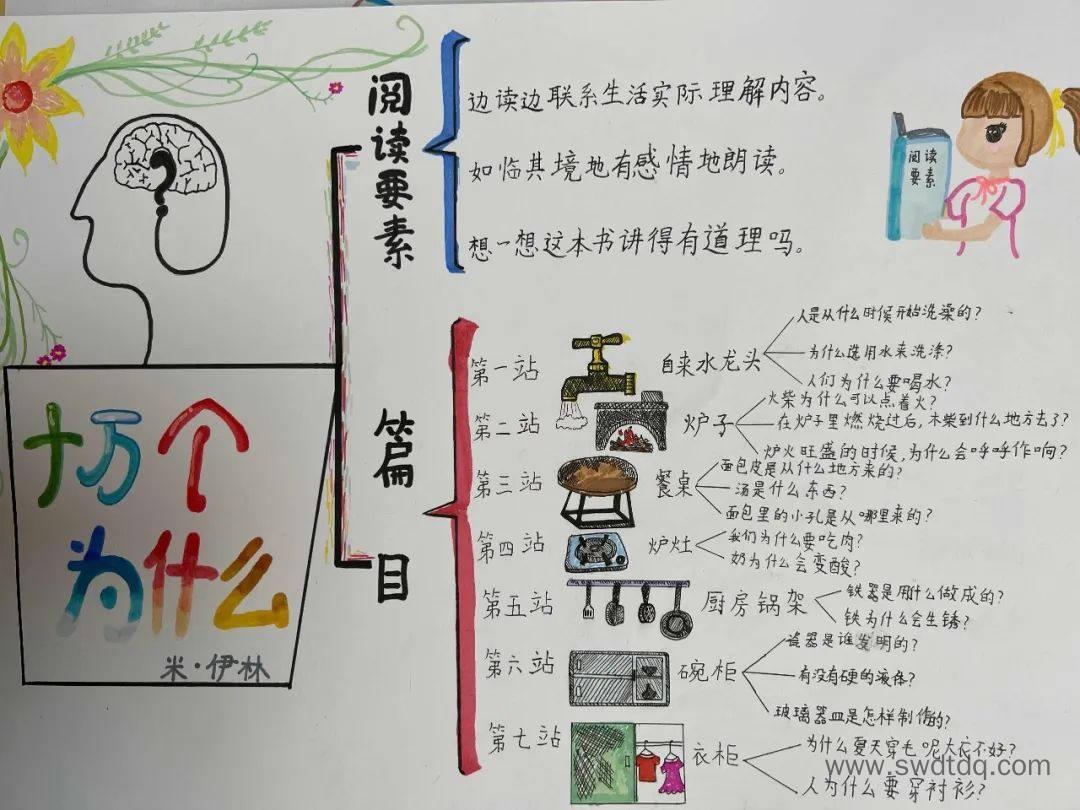 阅读要素
边读边联系生活实际理解内容。
如临其境地有感情地朗读。
想一想这本书讲得有道理吗。
阅读
要素
十万个
为什么
米·伊林
篇目
第一站
自来水龙头
人是从什么时候开始洗澡的?
为什么选用水来洗涤?
人们为什么要喝水?
第二站
炉子
火柴为什么可以点着火?
在炉子里燃烧过后,木柴到什么地方去了?
炉火旺盛的时候,为什么会呼呼作响?
第三站
餐桌
面包皮是从什么地方来的?
汤是什么东西?
面包里的小孔是从哪里来的?
第四站
炉灶
我们为什么要吃肉?
奶为什么会变酸?
第五站
厨房锅架
铁器是用什么做成的?
铁为什么会生锈?
第六站
碗柜
瓷器是谁发明的?
有没有硬的液体?
玻璃器皿是怎样制作的?
第七站
衣柜
为什么夏天穿毛呢大衣不好?
人为什么要穿衬衫?
www.swdtdq.com